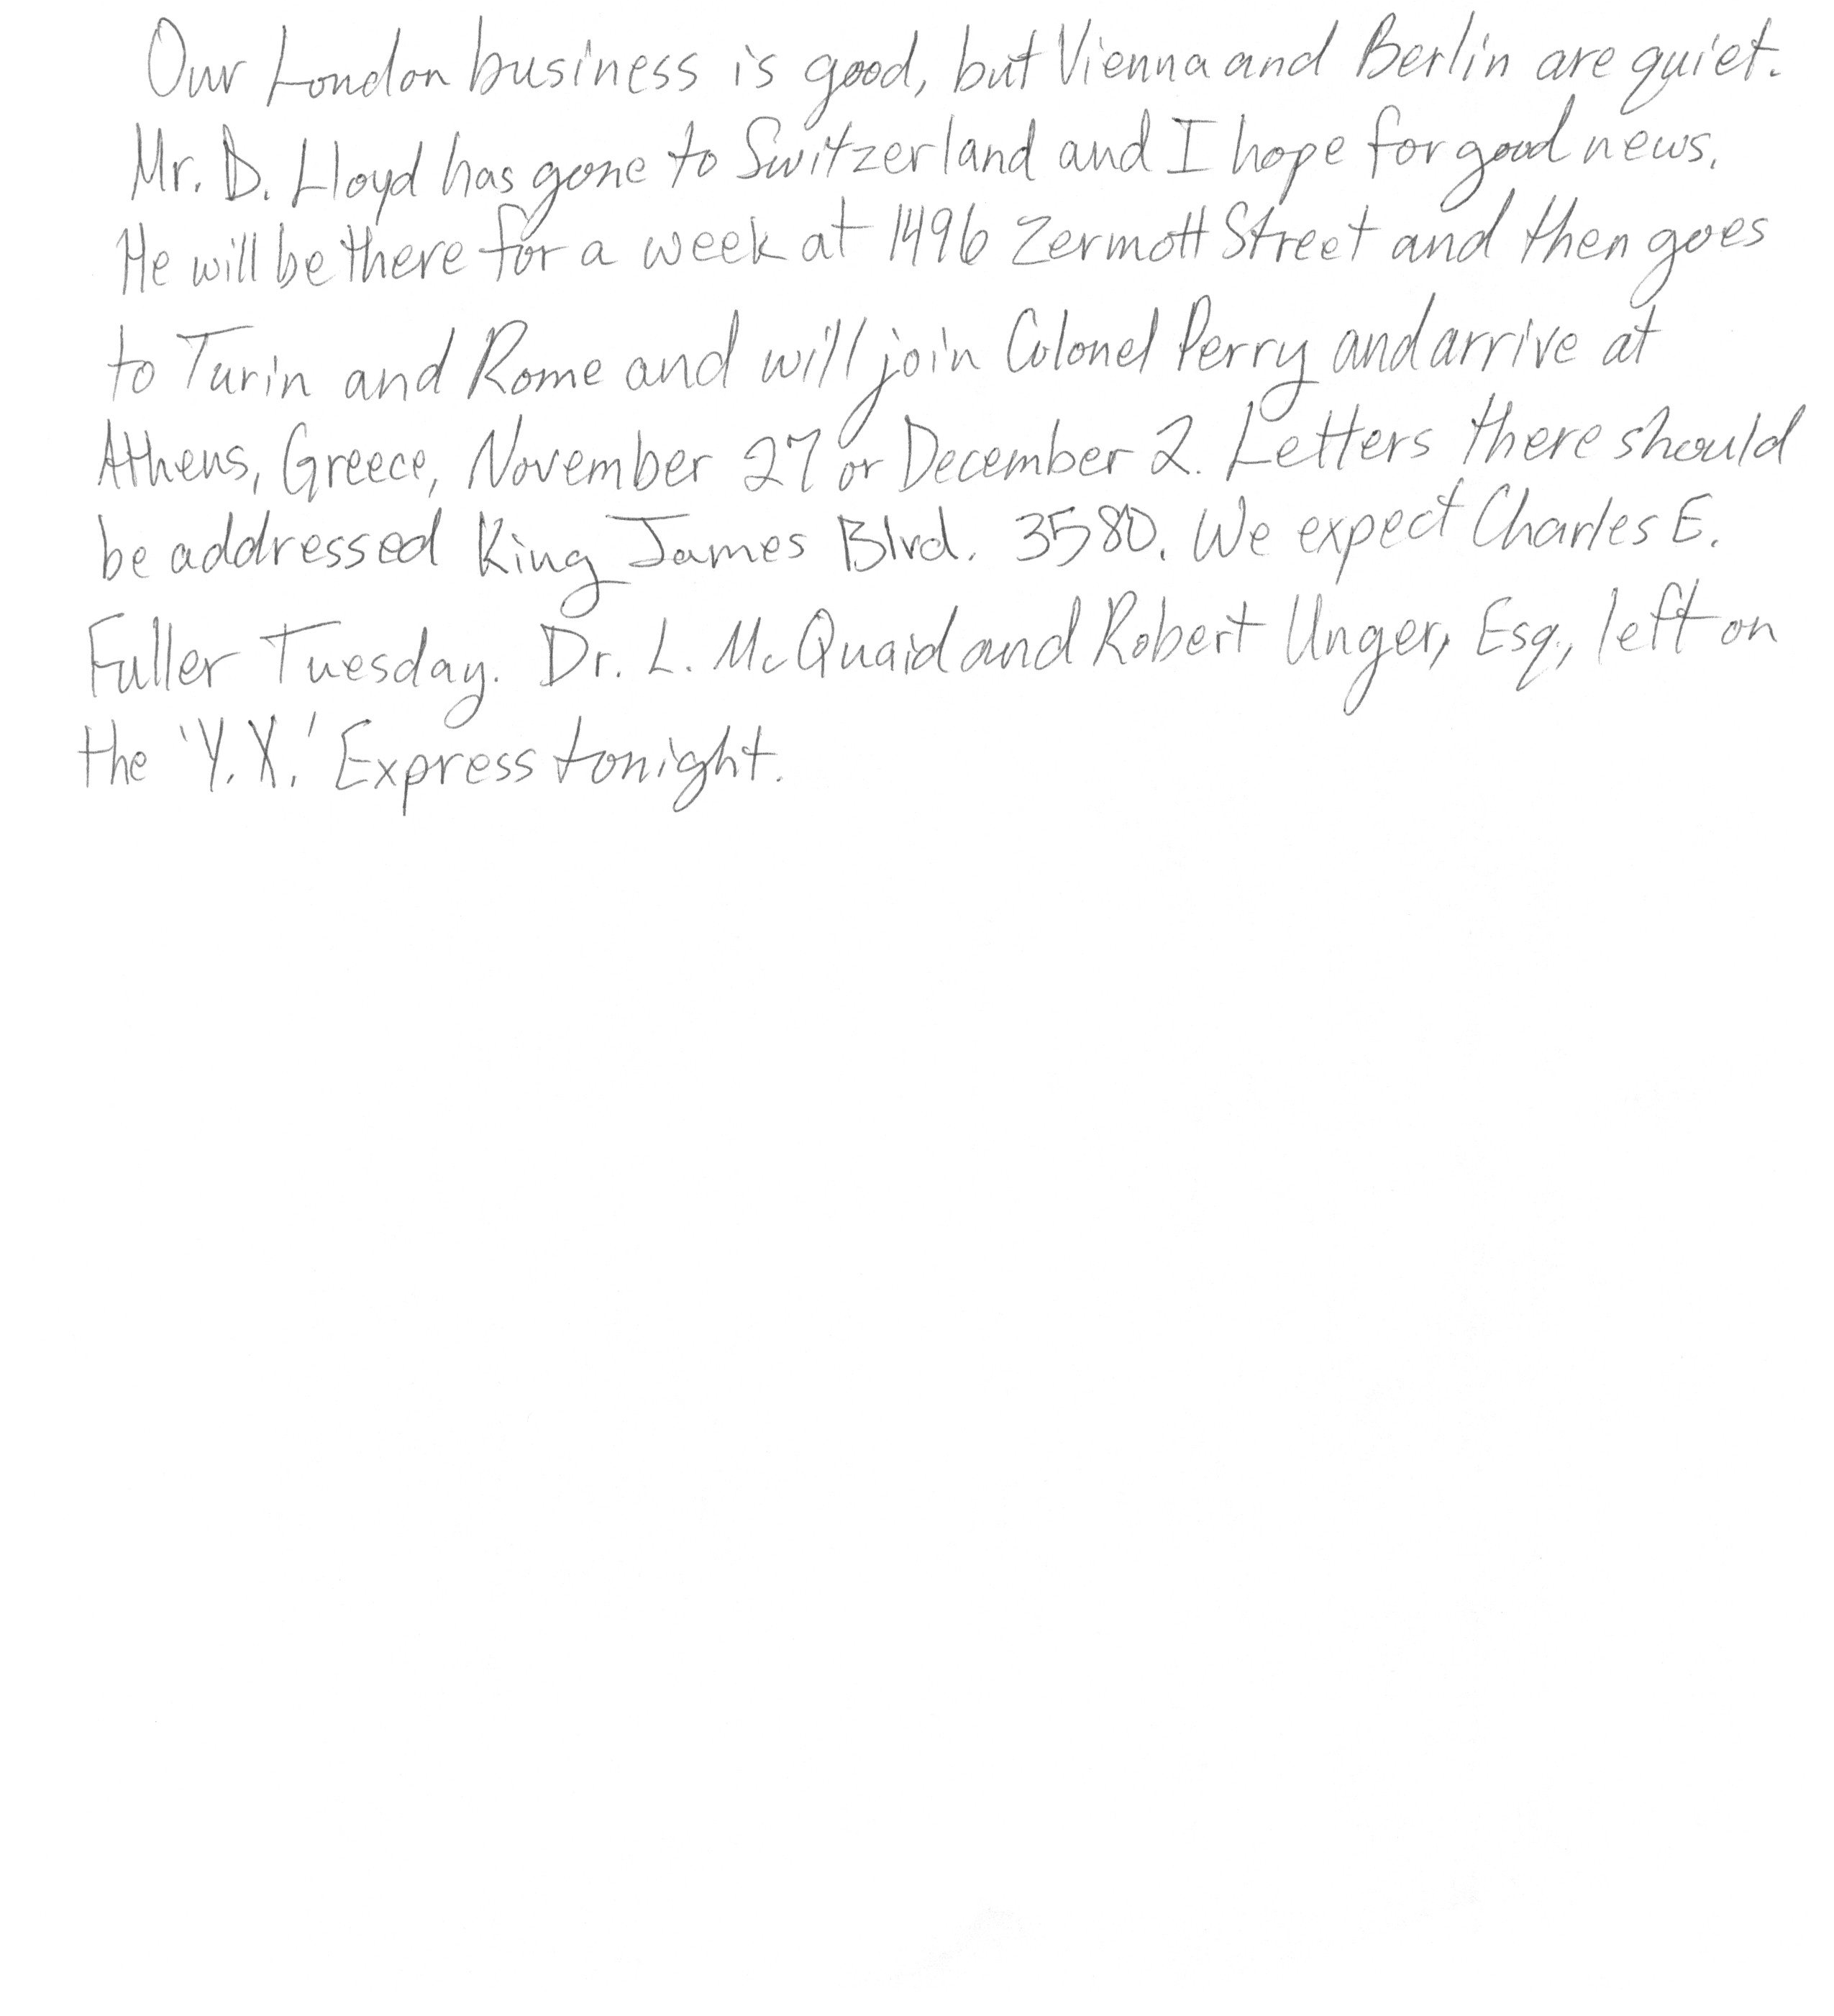 Our London business is good, but Vienna and Berlin are quiet.
Mr. D. Lloyd has gone to Switzerland and I hope for good news.
He will be there for a week at 1496 Zermott Street and then goes
to Turin and Rome and will join Colonel Perry and arrive at
Athens, Greece, November 27 or December 2. Letters there should
be addressed King James Blvd. 3580. We expect Charles E.
Fuller Tuesday. Dr. L. McQuaid and Robert Unger, Esq., left on
the 'Y.X.' Express tonight.